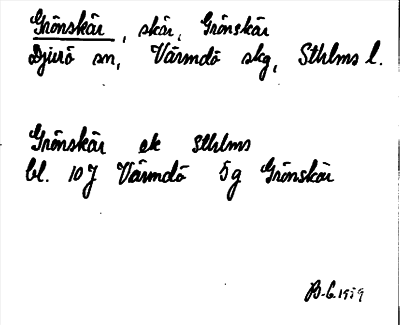 Grönskär, skär, Grönskär
Djurö sn, Värmdö skg, Sthlms l.
Grönskär ek Sthlms
bl. 10J Värmdö 5g Grönskär
B-G.1959